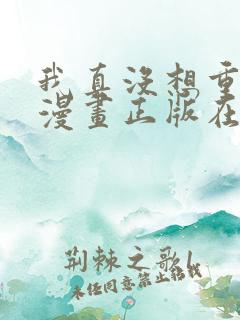 我真没想重
漫畫正版在
荆棘之歌l
未经同意禁止转载